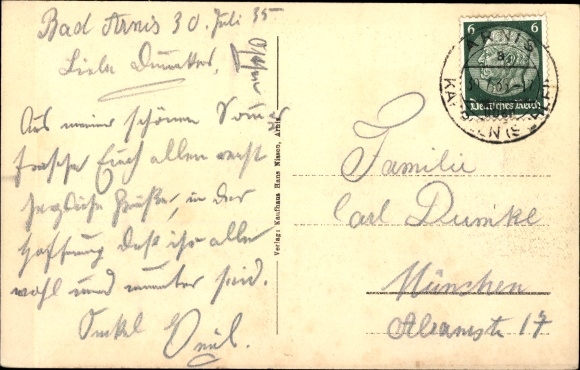 Bad Arnis 30. Juli 35
Liebe Dumkes,
Aus meiner schönen Somer
frische Euch allen recht
herzliche Grüße, in der
Hoffnung daß ihr alle
wohl und munter seid.
Onkel Emil.
Verlag: Kaufhaus Hans Nissen, Arnis
6 6
Deutsches Reich
ARNIS
Familie
Carl Dumke
München
17